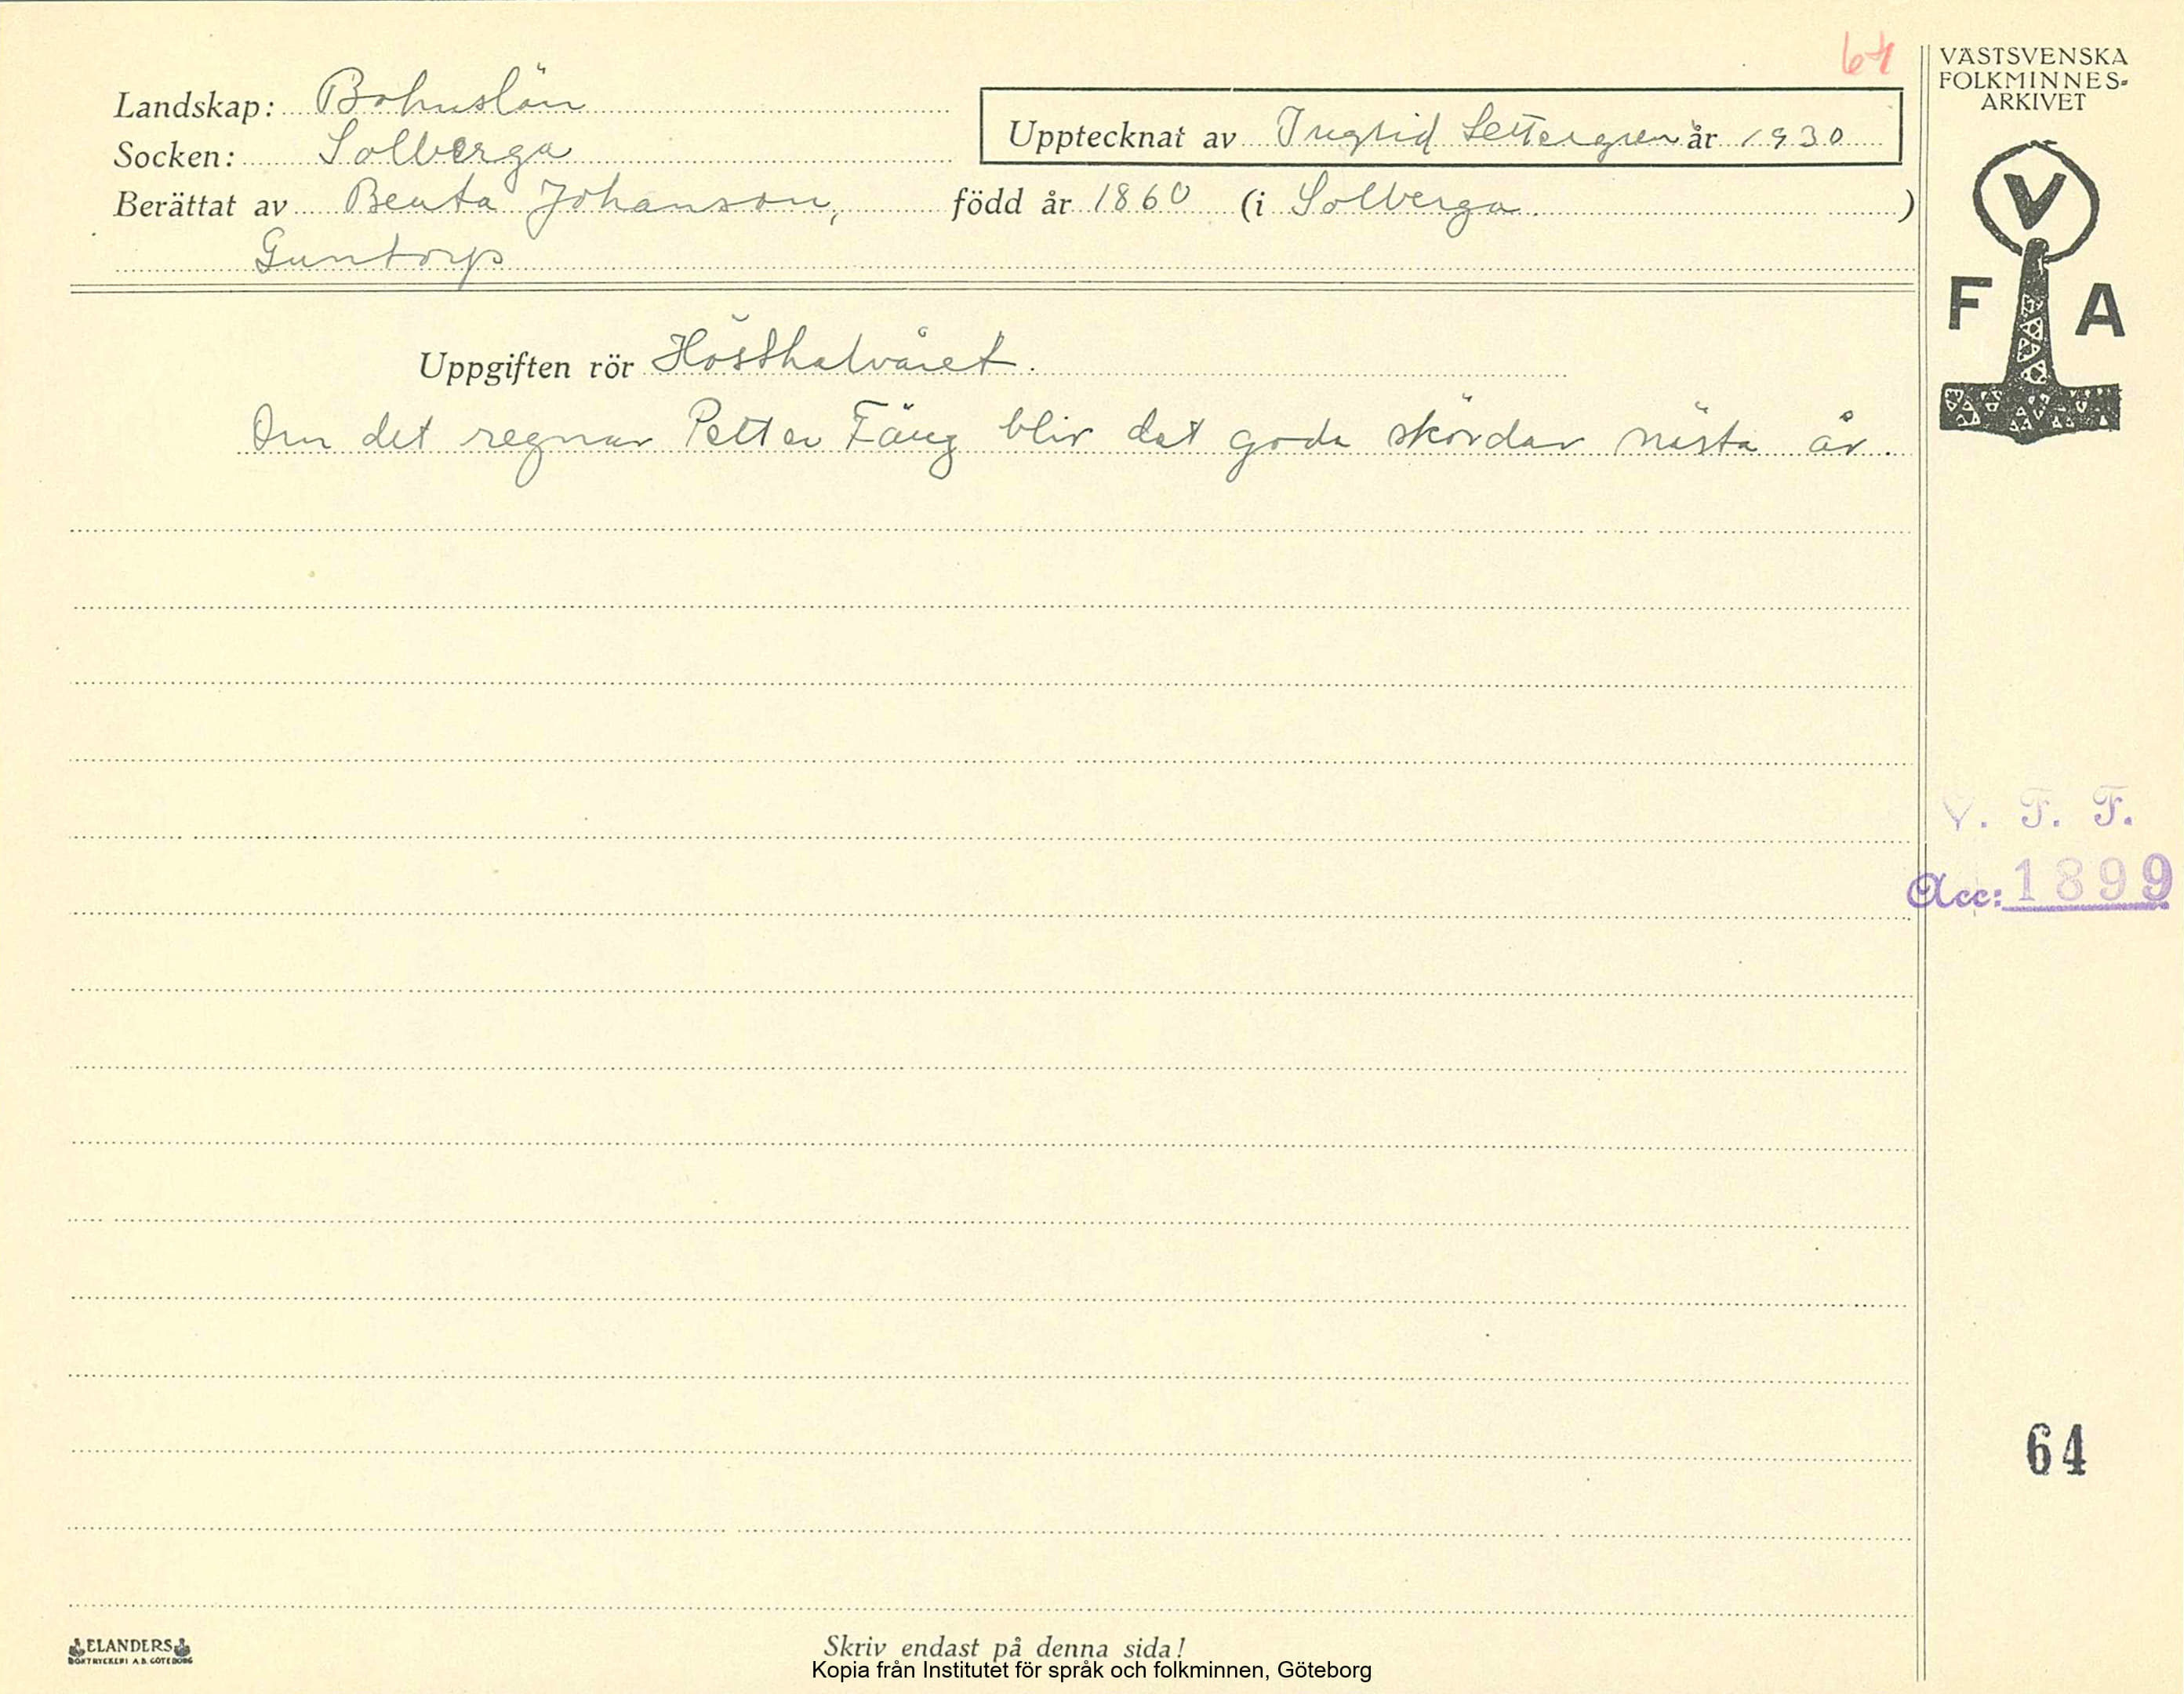 64
VÄSTSVENSKA
FOLKMINNES-
ARKIVET
Landskap: Bohuslän
Upptecknat av Ingrid Settergren år 1930
Socken: Solberga
Berättat av Beata Johanson, född år 1860 (i Solberga )
Guntorp
V
F A
Uppgiften rör Hösthalvåret.
Om det regnar Petter Fäng blir det goda skördar nästa år.
V. F. F.
Acc: 1899
64
ELANDERS
BOKTRYCKERI A.B. GÖTEBORG
Skriv endast på denna sida!
Kopia från Institutet för språk och folkminnen, Göteborg